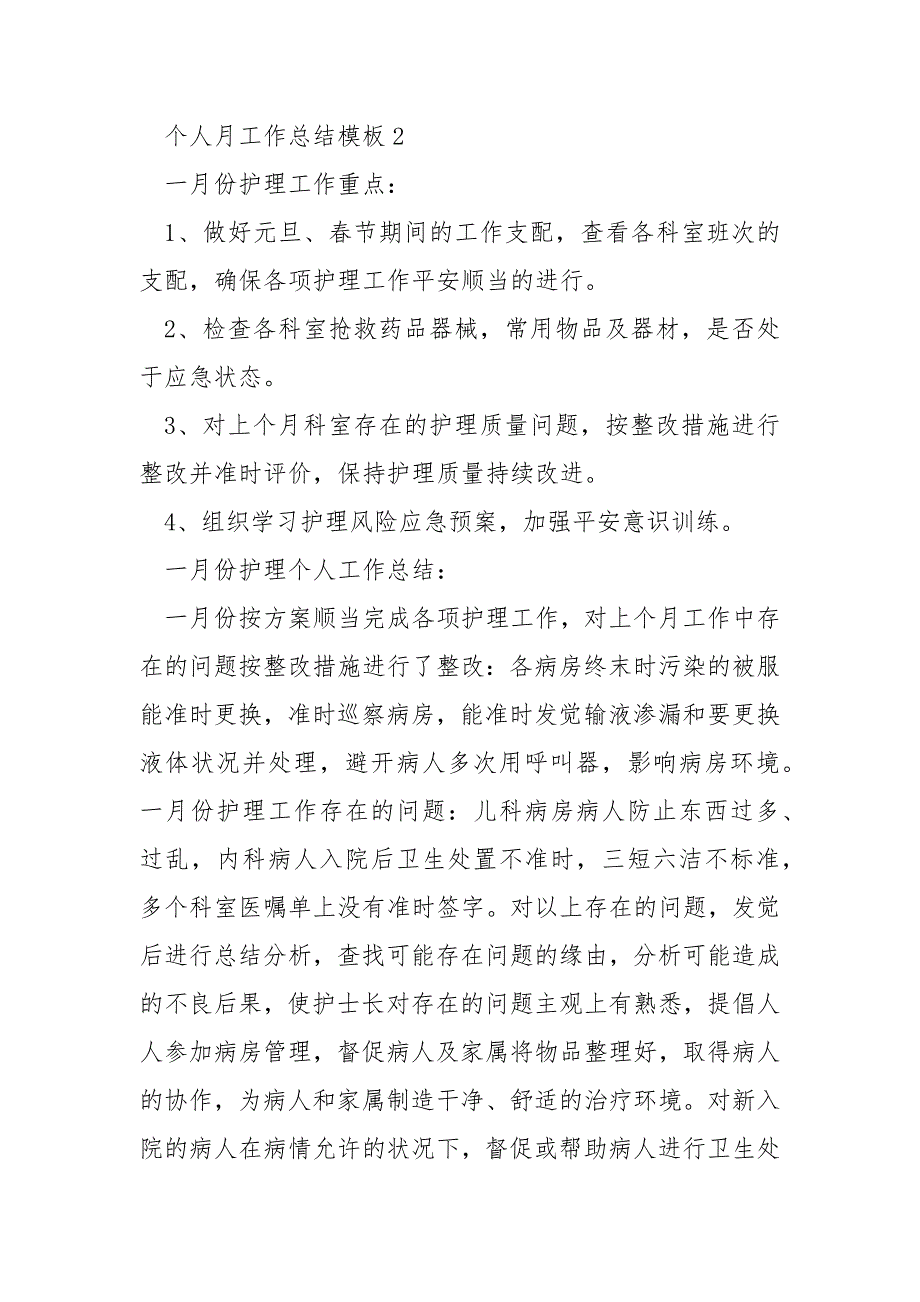 个人月工作总结模板2
一月份护理工作重点：
1、做好元旦、春节期间的工作支配，查看各科室班次的
支配，确保各项护理工作平安顺当的进行。
2、检查各科室抢救药品器械，常用物品及器材，是否处
于应急状态。
3、对上个月科室存在的护理质量问题，按整改措施进行
整改并准时评价，保持护理质量持续改进。
4、组织学习护理风险应急预案，加强平安意识训练。
一月份护理个人工作总结：
一月份按方案顺当完成各项护理工作，对上个月工作中存
在的问题按整改措施进行了整改：各病房终末时污染的被服
能准时更换，准时巡察病房，能准时发觉输液渗漏和要更换
液体状况并处理，避开病人多次用呼叫器，影响病房环境。
一月份护理工作存在的问题：儿科病房病人防止东西过多、
过乱，内科病人入院后卫生处置不准时，三短六洁不标准，
多个科室医嘱单上没有准时签字。对以上存在的问题，发觉
后进行总结分析，查找可能存在问题的缘由，分析可能造成
的不良后果，使护士长对存在的问题主观上有熟悉，提倡人
人参加病房管理，督促病人及家属将物品整理好，取得病人
的协作，为病人和家属制造干净、舒适的治疗环境。对新入
院的病人在病情允许的状况下，督促或帮助病人进行卫生处